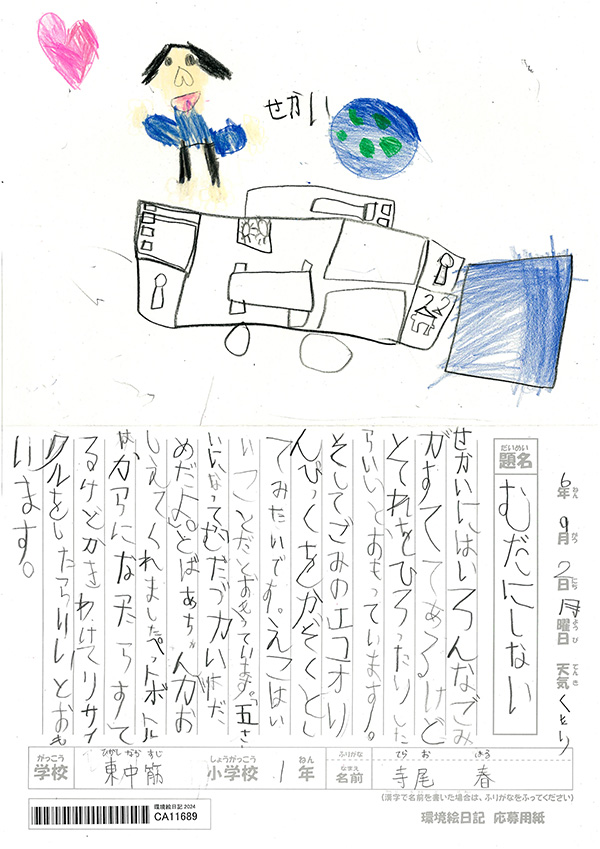 せかい
6年9月2日月曜日 天気 くもり
ねん がつ にち ようび てんき
だいめい
題名 むだにしない
せかいにはいろんなごみ
がすててあるけど
とてれをひろったりした
らいいとおもっています。
そしてごみのエコオリ
んぴっくをかぞくとし
てみたいです。えこはい
いことだとおもっています。「五さ
いになって「むだづかいはだ
めだよ。」とばあちゃんがお
しえてくれました。ペットボトル
はからになったらすて
るけどかきわけてリサイ
クルをしたらいいとおも
います。
がっこう ひがし なか すじ しょうがっこう ねん ふりがな てら お はる
学校 東中筋 小学校 1年 なまえ 名前 寺尾 春
(漢字で名前を書いた場合は、ふりがなをふってください)
環境絵日記 2024
CA11689
環境絵日記 応募用紙